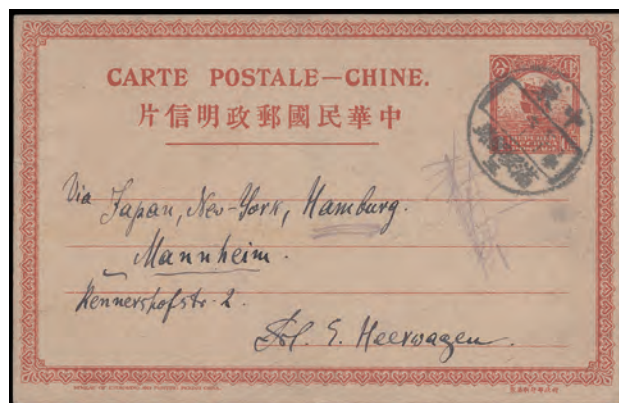 CARTE POSTALE—CHINE.
片信明政郵國民華中
Via Japan, New-York, Hamburg.
Mannheim.
Rennershofstr. 2.
Frl. E. Heerwagen.